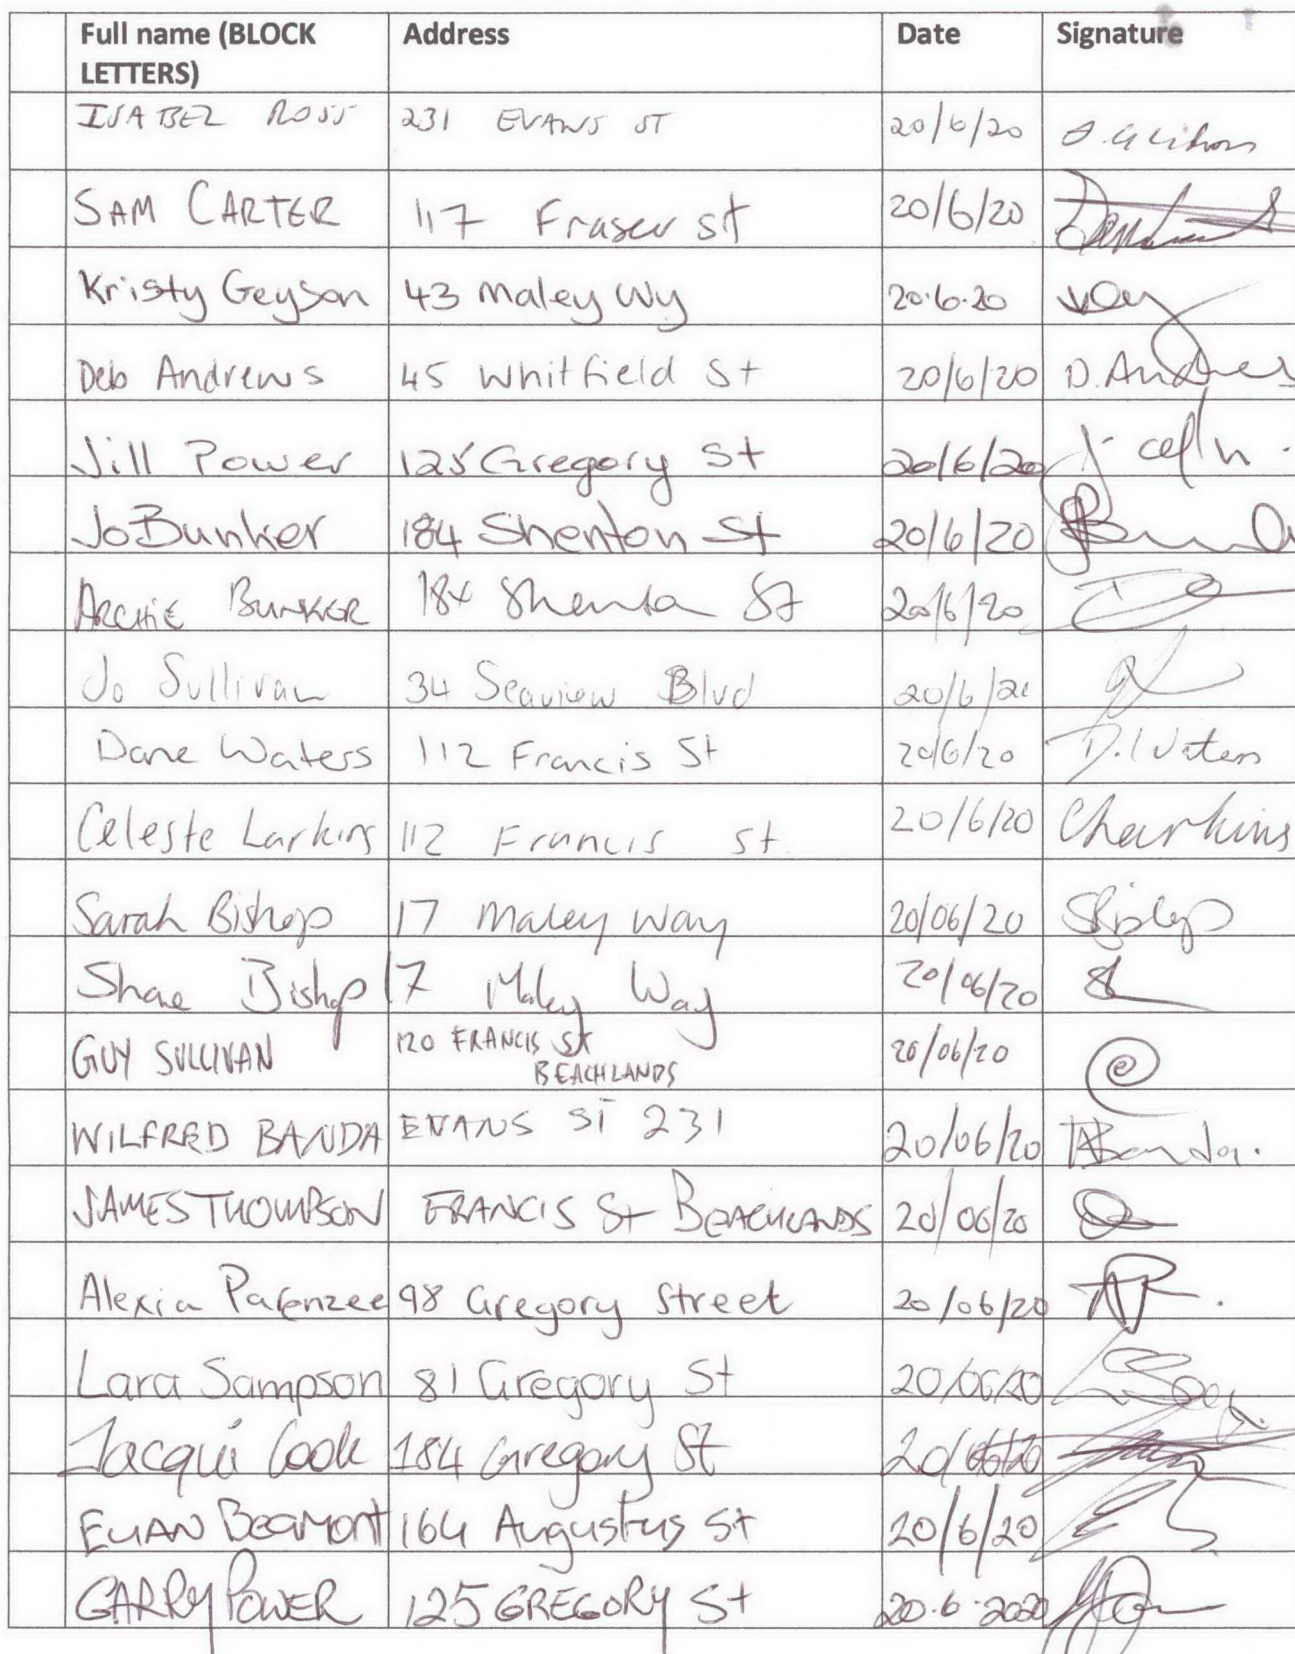 Full name (BLOCK LETTERS) Address Date Signature
ISABEL ROSS 231 EVANS ST 20/6/20
SAM CARTER 117 Fraser st 20/6/20
Kristy Geyson 43 Maley Wy 20.6.20
Deb Andrews 45 Whitfield St 20/6/20 D. Andrews
Jill Power 125 Gregory St 20/6/20
Jo Bunker 184 Shenton St 20/6/20
ARCHIE BUNKER 184 Shenton St 20/6/20
Jo Sullivan 34 Seaview Blvd 20/6/20
Dane Waters 112 Francis St 20/6/20 D. Waters
Celeste Larkins 112 Francis st 20/6/20 CLarkins
Sarah Bishop 17 Maley Way 20/06/20 SBishop
Shae Bishop 17 Maley Way 20/06/20
GUY SULLIVAN 120 FRANCIS St 20/06/20
BEACHLANDS
WILFRED BANDA EVANS ST 231 20/06/20 WBanda.
JAMES THOMPSON FRANCIS St BEACHLANDS 20/06/20
Alexia Parenzee 98 Gregory Street 20/06/20 AP.
Lara Sampson 81 Gregory St 20/06/20
Jacqui Cook 184 Gregory St 20/06/20
EUAN Beamont 164 Augustus St 20/6/20
GARRY POWER 125 GREGORY St 20.6.2020